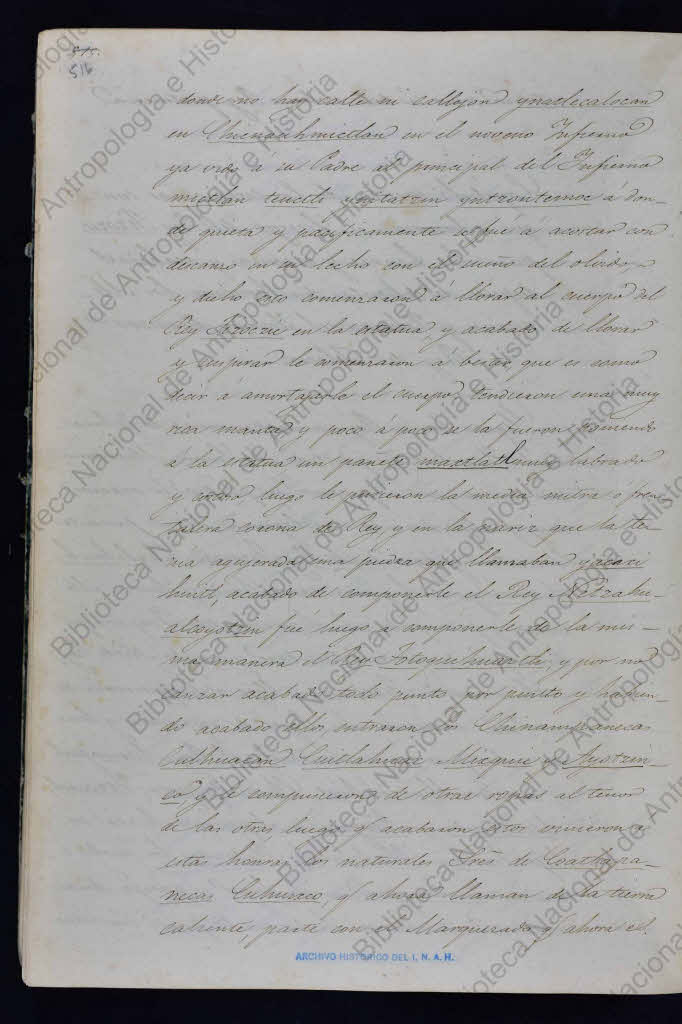 515.
516
donde no hay calle ni callejon ynatlecalocan
en Chicnauhmictlan en el noveno Infierno
ya vido á su Padre al principal del Infierno
mictlan teuctli yn tzontemoc á don-
de quieta y pacificamente se fué a acostar con
descanso en un lecho con el sueño del olvido,
y dicho esto comenzaron á llorar al cuerpo del
Rey Tizoczic en la estatua, y acabado de llorar
y suspirar le comenzaron á que es como
decir á amortajarle el cuerpo, tendieron una muy
rica manta y poco á poco se la fueron poniendo
á la estatua un pañete maxtlatl muy labrado
y luego le pusieron la media mitra ó fron-
talera corona de Rey, y en la nariz que la te-
nia agujerada una piedra que llamaban yacaxi
huitl, acabado de componerle el Rey Netzahu-
alcoyotzin fué luego a componerle de la mis-
ma manera el Rey Totoquihuaztli, y por no
cansar acabado todo punto por punto y habien-
do acabado ellos, entraron los Chinampanecas
Culhuacan Cuitlahuac Mizquic Ayotzin-
co, y le compusieron de otras ropas al tenor
de las otras, luego q. acabaron estos vinieron a
estas honras los naturales Tres de Coatlapa-
necas q. ahora llaman de la tierra
caliente, parte con el Marquesado q. ahora es.
ARCHIVO HISTORICO DEL I. N. A. H.
Biblioteca Nacional de Antropología e Historia